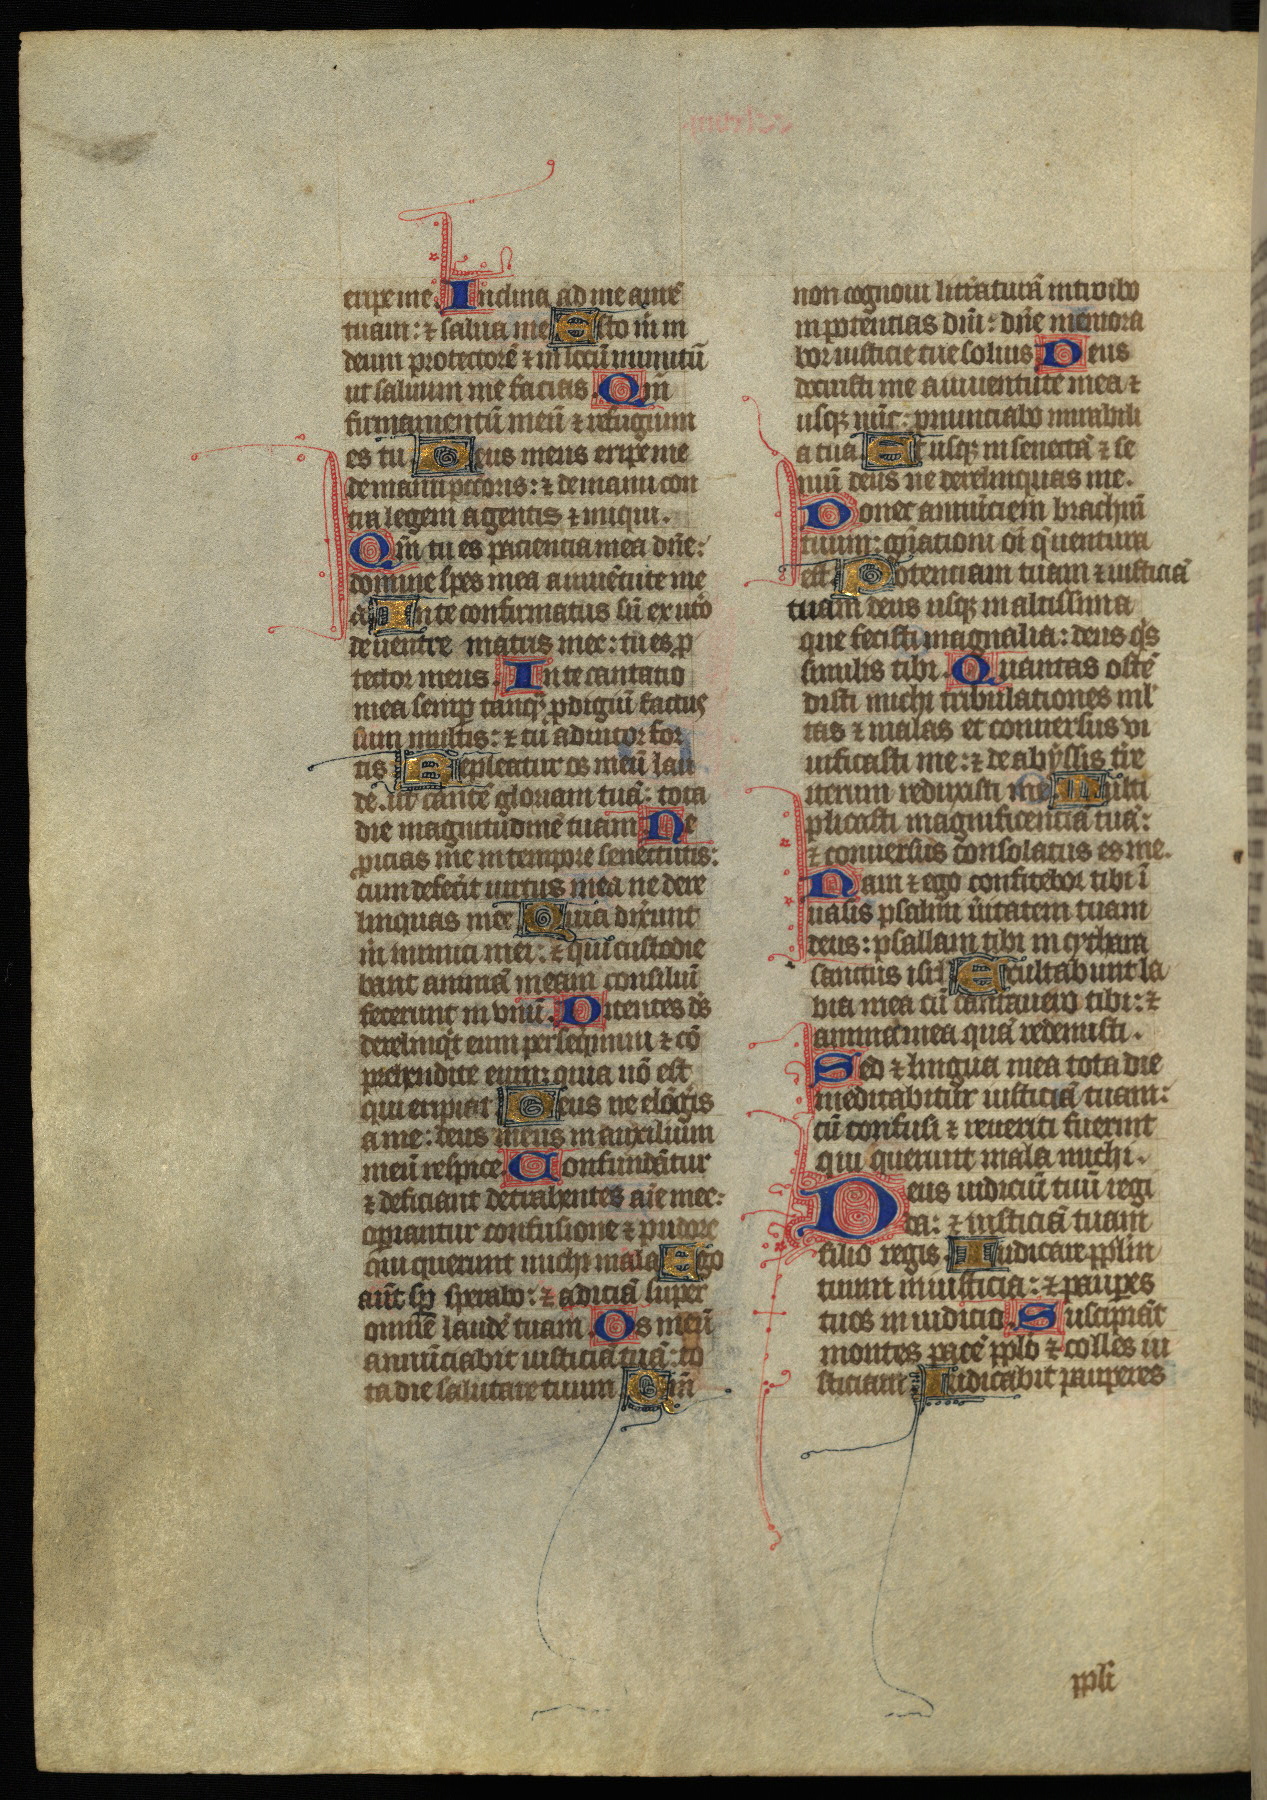 eripe me. Inclina ad me aurē
tuam: ⁊ salua me Esto m̄ in
deum protectorē ⁊ in locū munitū
ut saluum me facias. Qm̄
firmamentū meū ⁊ refugium
es tu Deus meus eripe me
de manu pctoris: ⁊ de manu con
tra legem agentis ⁊ iniqui.
Qm̄ tu es paciencia mea dn̄e:
domine spes mea a iuuētute me
a In te confirmatus sū ex utō
de uentre matris mee: tu es p
tector meus. In te cantatio
mea semp tanq̄ pdigiū factus
sum multis: ⁊ tu adiutor for
tis Repleatur os meū lau
de. ut cantē gloriam tuā: tota
die magnitudinē tuam Ne
proicias me in tempore senectutis:
cum defecīt uirtus mea ne dere
linquas mee Quia dixerunt
m̄ inimici mei: ⁊ qui custodie
bant animā meam consiliū
fecerunt in vnū. Dicentes ds̄
dereliq̄t eum persequimini ⁊ cō
prehendite eum: quia nō est
qui eripiat Deus ne elōgis
a me: deus meus in auxilium
meū respice. Confundātur
⁊ deficiant detrahentes aīe mee:
opiantur confusione ⁊ pudore
qui querunt michi mala Ego
aūt sp sperabo: ⁊ adiciā super
omnē laudē tuam. Os meū
annūciabit iusticiā tuā: to
ta die salutare tuum Qm̄
non cognoui litt̄aturā introibo
in potentias dn̄i: dn̄e memora
bor iusticie tue solius Deus
docuisti me a iuuentute mea ⁊
usqꝫ nūc: pnunciabo mirabili
a tua Et usqꝫ in senectā ⁊ se
niū deus ne derelinquas me.
Donec annūciem brachiū
tuum: gn̄ationi oī q̄ uentura
est Potentiam tuam ⁊ iusticiā
tuam deus usqꝫ in altissima
que fecisti magnalia: deus q̄s
similis tibi. Quantas ostē
disti michi tribulationes ml̄
tas ⁊ malas et conuersus vi
uificasti me: ⁊ de abyssis t̄re
iterum reduxisti me Multi
plicasti magnificenciā tuā:
⁊ conuersus consolatus es me.
Nam ⁊ ego confitebor tibi ī
uasis psalmi ūitatem tuam
deus: psallam tibi in cythara
sanctus isrl̄ Exultabunt la
bia mea cū cantauero tibi: ⁊
anima mea quā redemisti.
Sed ⁊ lingua mea tota die
meditabitur iusticiā tuam:
cū confusi ⁊ reueriti fuerint
qui querunt mala michi.
Deus iudiciū tuū regi
da: ⁊ iusticiā tuam
filio regis. Iudicare pplm̄
tuum in iusticia: ⁊ paupes
tuos in iudicio. Suscipiāt
montes pacē pplo ⁊ colles iu
sticiam Iudicabit pauperes
ppli